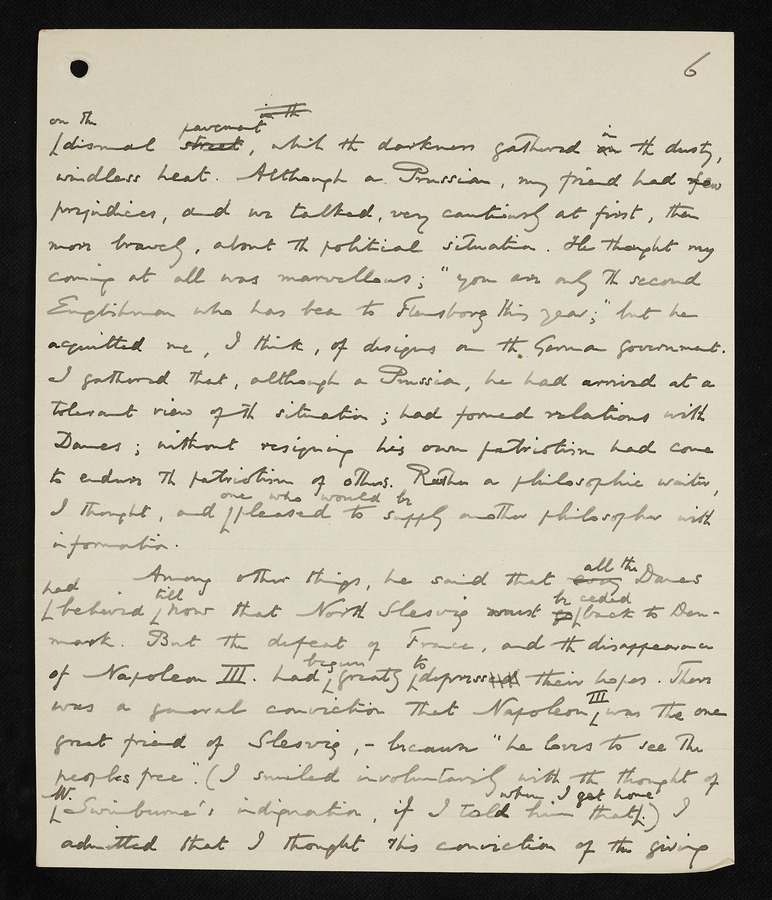 6
in th
on th pavement in
dismal street, while th darkness gathered on th dusty,
windless heat. Although a Prussian, my friend had few
prejudices, and we talked, very cautiously at first, then
more bravely, about th political situation. He thought my
coming at all was marvellous; "you are only th second
Englishman who has been to Flensborg this year;" but he
acquitted me, I think, of designs on th German government.
I gathered that, although a Prussian, he had arrived at a
tolerant view of th situation; had formed relations with
Danes; without resigning his own patriotism had come
to endure th patriotism of others. Rather a philosophic waiter,
one who would be
I thought, and pleased to supply another philosopher with
information.
all the
Among other things, he said that every Danes
had till be ceded
believed now that North Slesvig must go back to Den-
mark. But the defeat of France, and th disappearance
begun to
of Napoleon III. had greatly depressed their hopes. There
III
was a general conviction that Napoleon was the one
great friend of Slesvig, - because "he loves to see the
peoples free". (I smiled involuntarily with th thought of
Mr. when I get home
Swinburne's indignation, if I told him that!) I
admitted that I thought this conviction of the giving